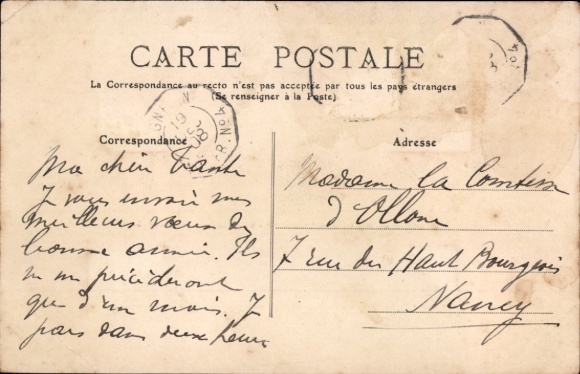 CARTE POSTALE
La Correspondance au recto n'est pas acceptée par tous les pays étrangers
(Se renseigner à la Poste)
Correspondance
Ma chère tante
Je vous envoie mes
meilleurs vœux de
bonne année. Ils
ne me précéderont
que d'un mois. Je
pars dans deux heures
Adresse
Madame la Comtesse
d'Ollone
7 rue du Haut Bourgeois
Nancy